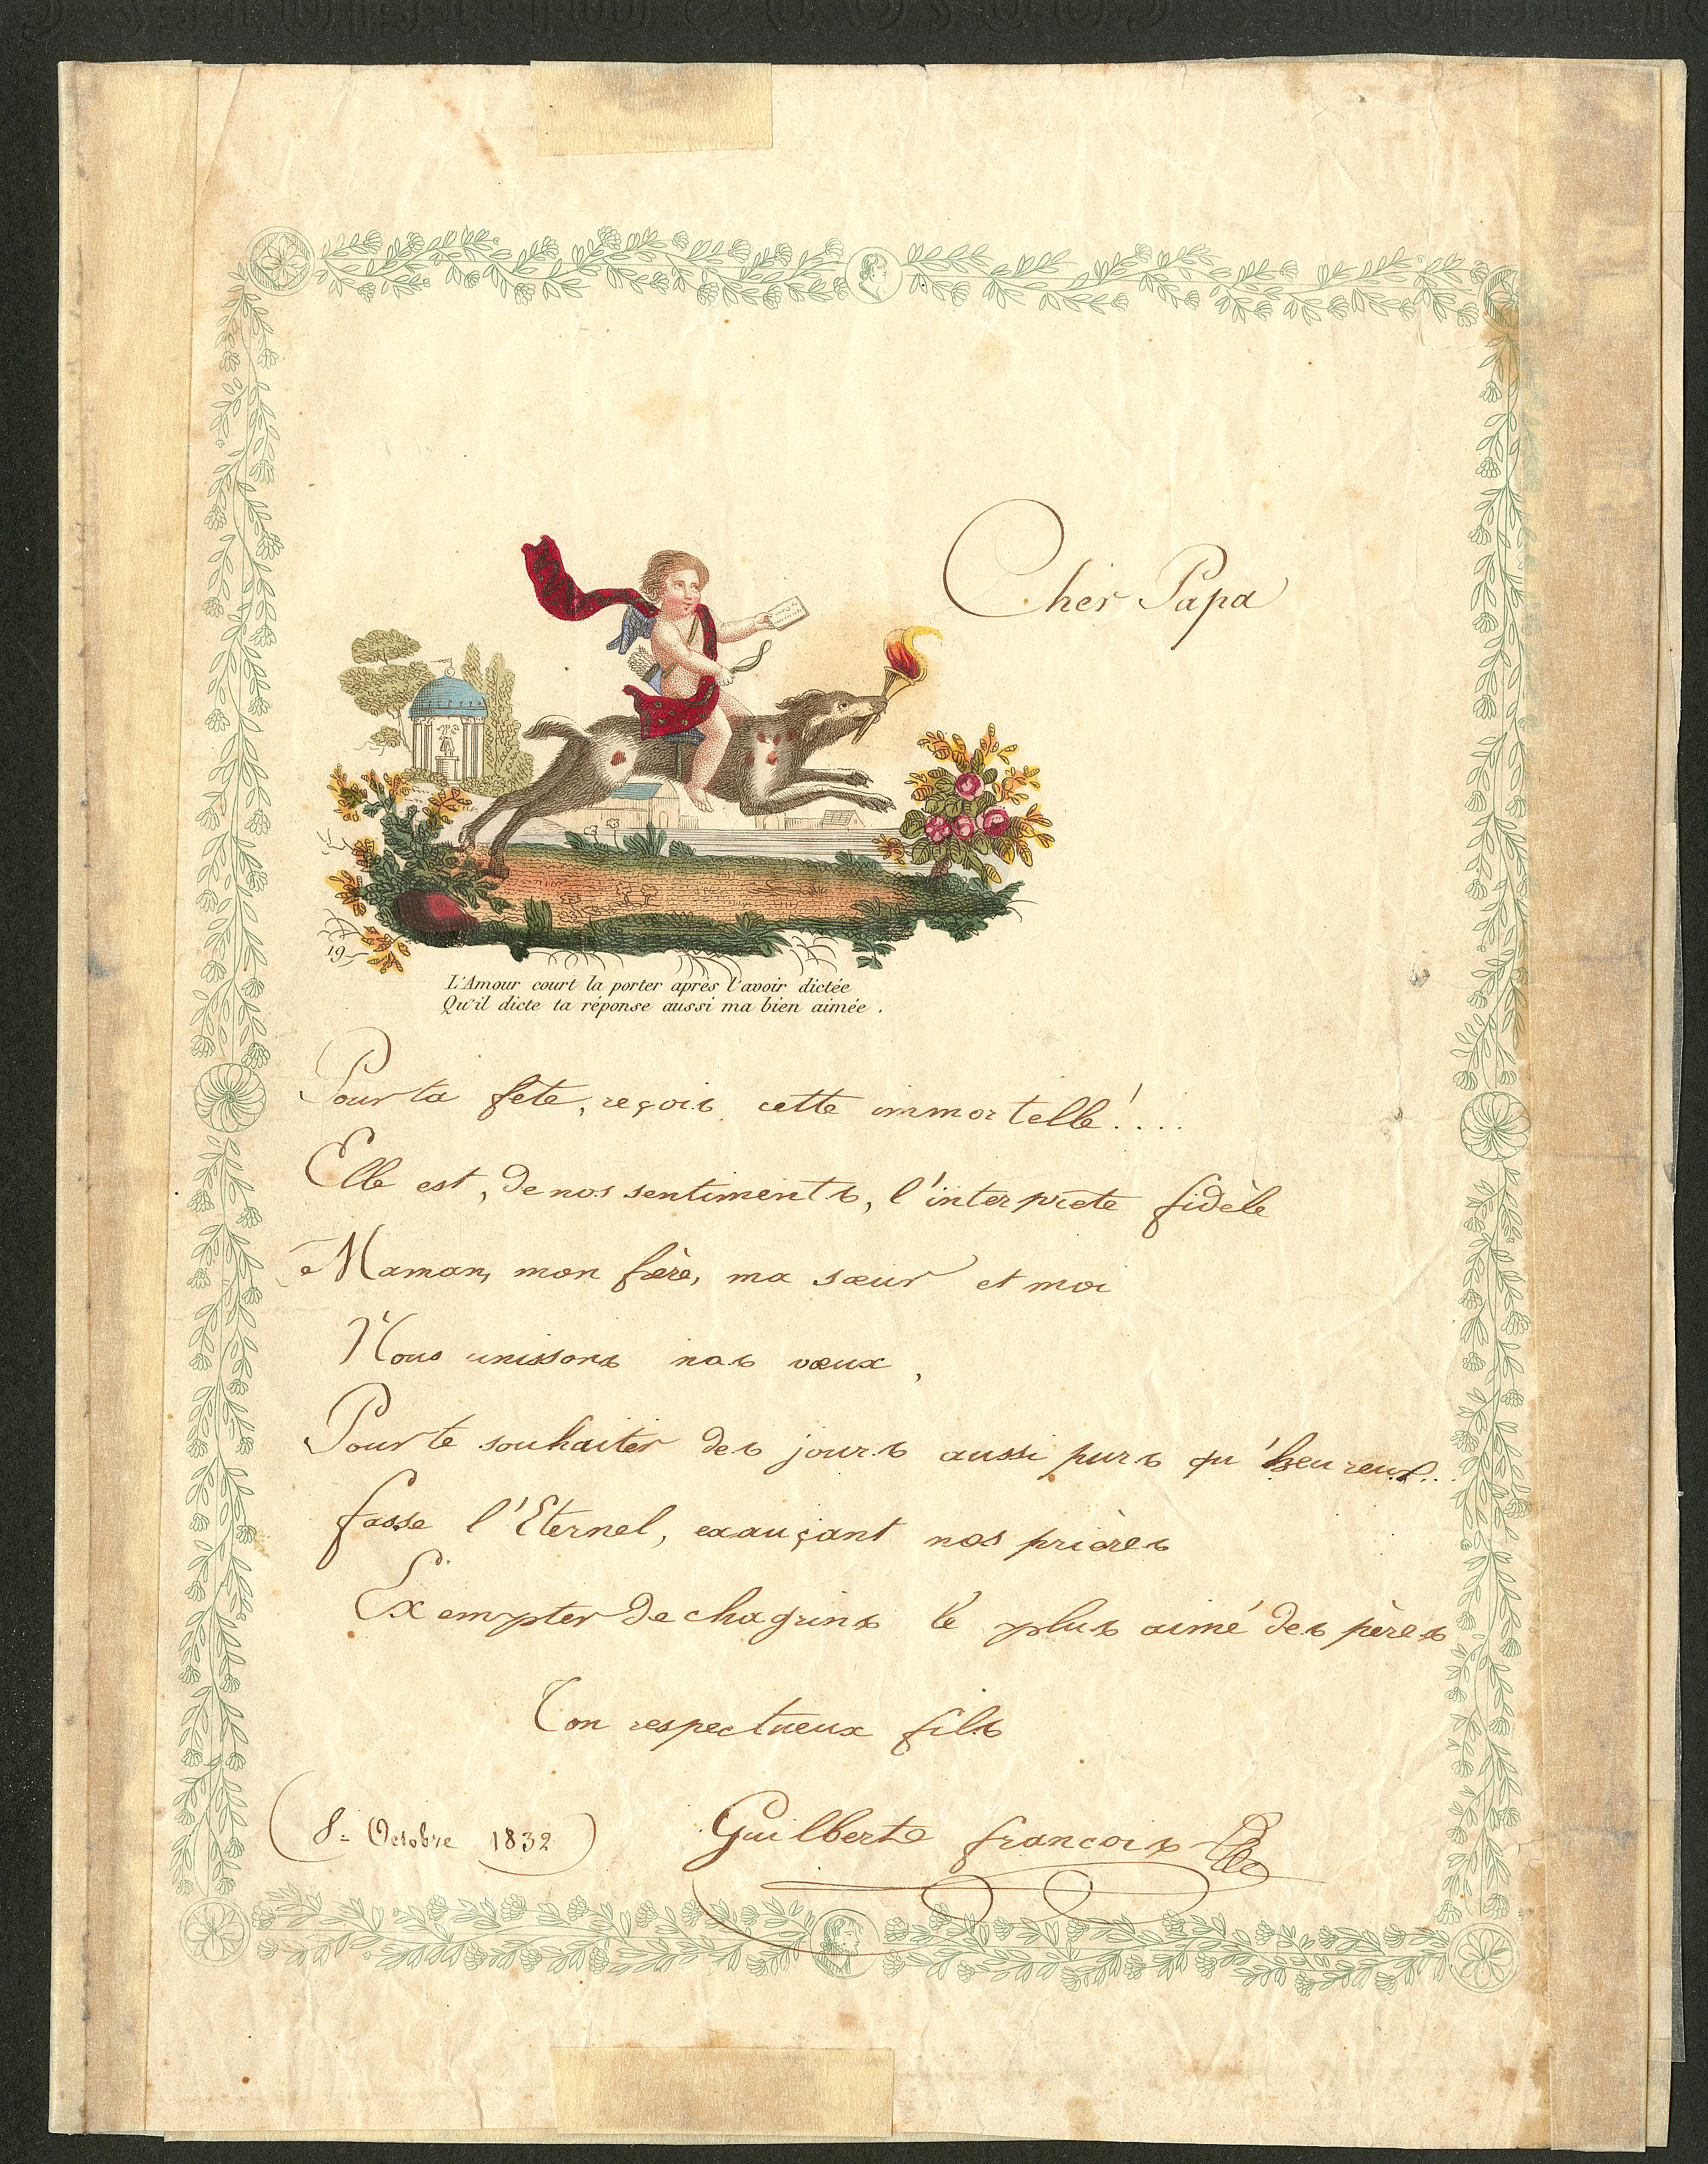 Cher Papa
19
L'Amour court la porter après l'avoir dictée
Qu'il dicte ta réponse aussi ma bien aimée.
Pour ta fete, reçois cette immortelle!....
Elle est, de nos sentiments, l'interprete fidèle
Maman, mon frère, ma sœur et moi
Nous unissons nos vœux,
Pour te souhaiter des jours aussi purs qu'heureux...
fasse l'Eternel, exauçant nos prières
Exempter de chagrins le plus aimé des pères
Ton respectueux fils
(8= Octobre 1832)
Guilberte francois